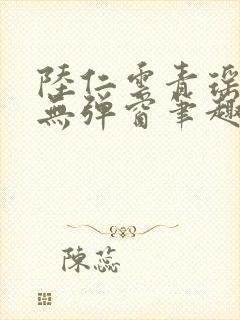 陸仁雲青瑤
無彈窗筆趣
陳蕊